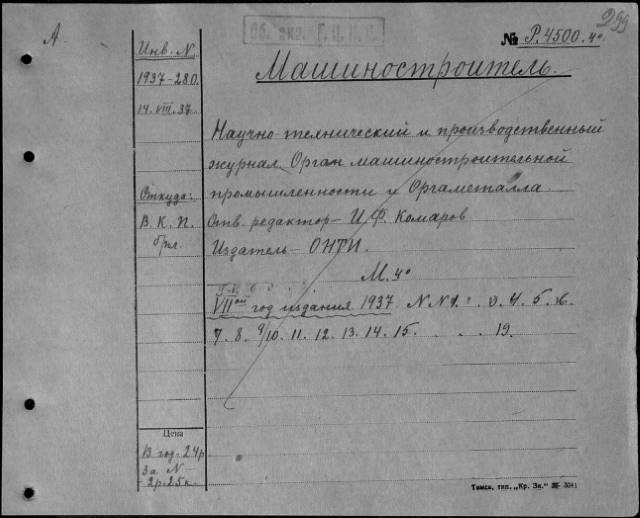 299
№ Р.4500.4°
А.
Инв. N
1937-280.
14.VIII.37
Откуда:
В. К. П.
Цена
В год-24р
За N
-2р.25к.
Машиностроитель.
Научно-технический и производственный
журнал. Орган машиностроительной
промышленности и Оргаметалла
Отв. редактор- И.Ф. Комаров
Издатель- ОНТИ.
М. 4°
VIIой год издания 1937 N N 1. 4. 5. 6.
7. 8. 9/10. 11. 12. 13. 14. 15. . . . 19.
Томск, тип. „Кр. Зн." 3041